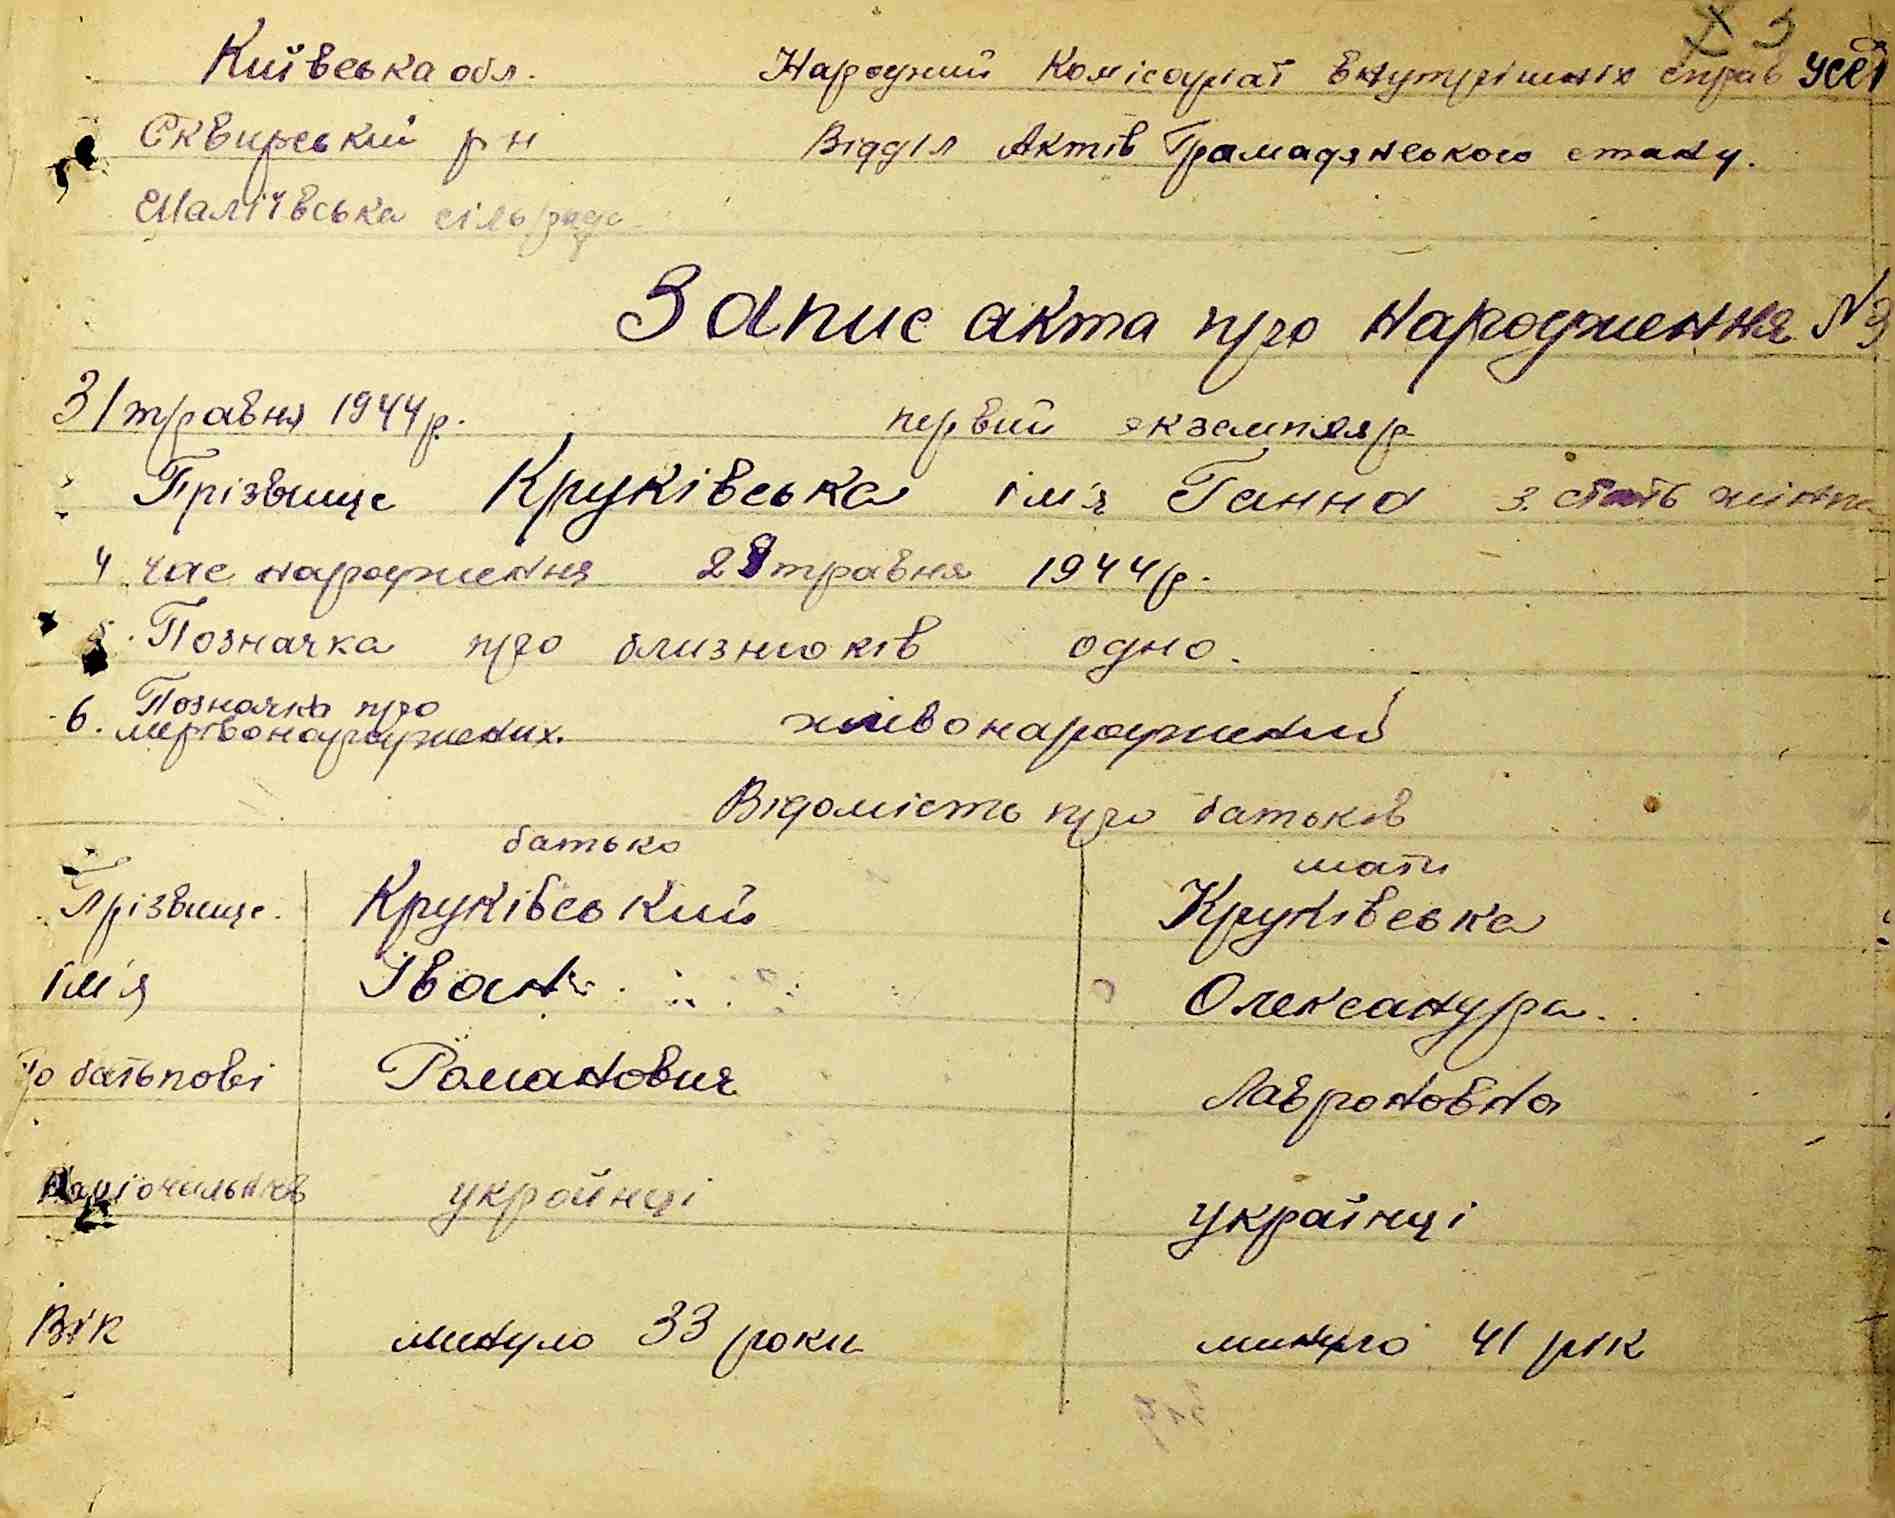 Київська обл. Народний Комісаріат Внутрішніх справ УССР
Сквирський р н Відділ Актів Громадянського стану.
Малiївська сільрада
Запис акта про народження № 3
31 травня 1944 р. первий екземпляр
Прізвище Круківська ім'я Ганна 3. стать жіноча
4 час народження 28 травня 1944 р.
5. Позначка про близнюків одно.
6. Позначка про мертвонароджених. живонароджений
Відомість про батьків
батько мати
Прізвище. Круківський Круківська
ім'я Іван Олександра.
По батькові Романович Лавроновна
Національність украйнці українці
Вік минуло 33 роки минуло 41 рік